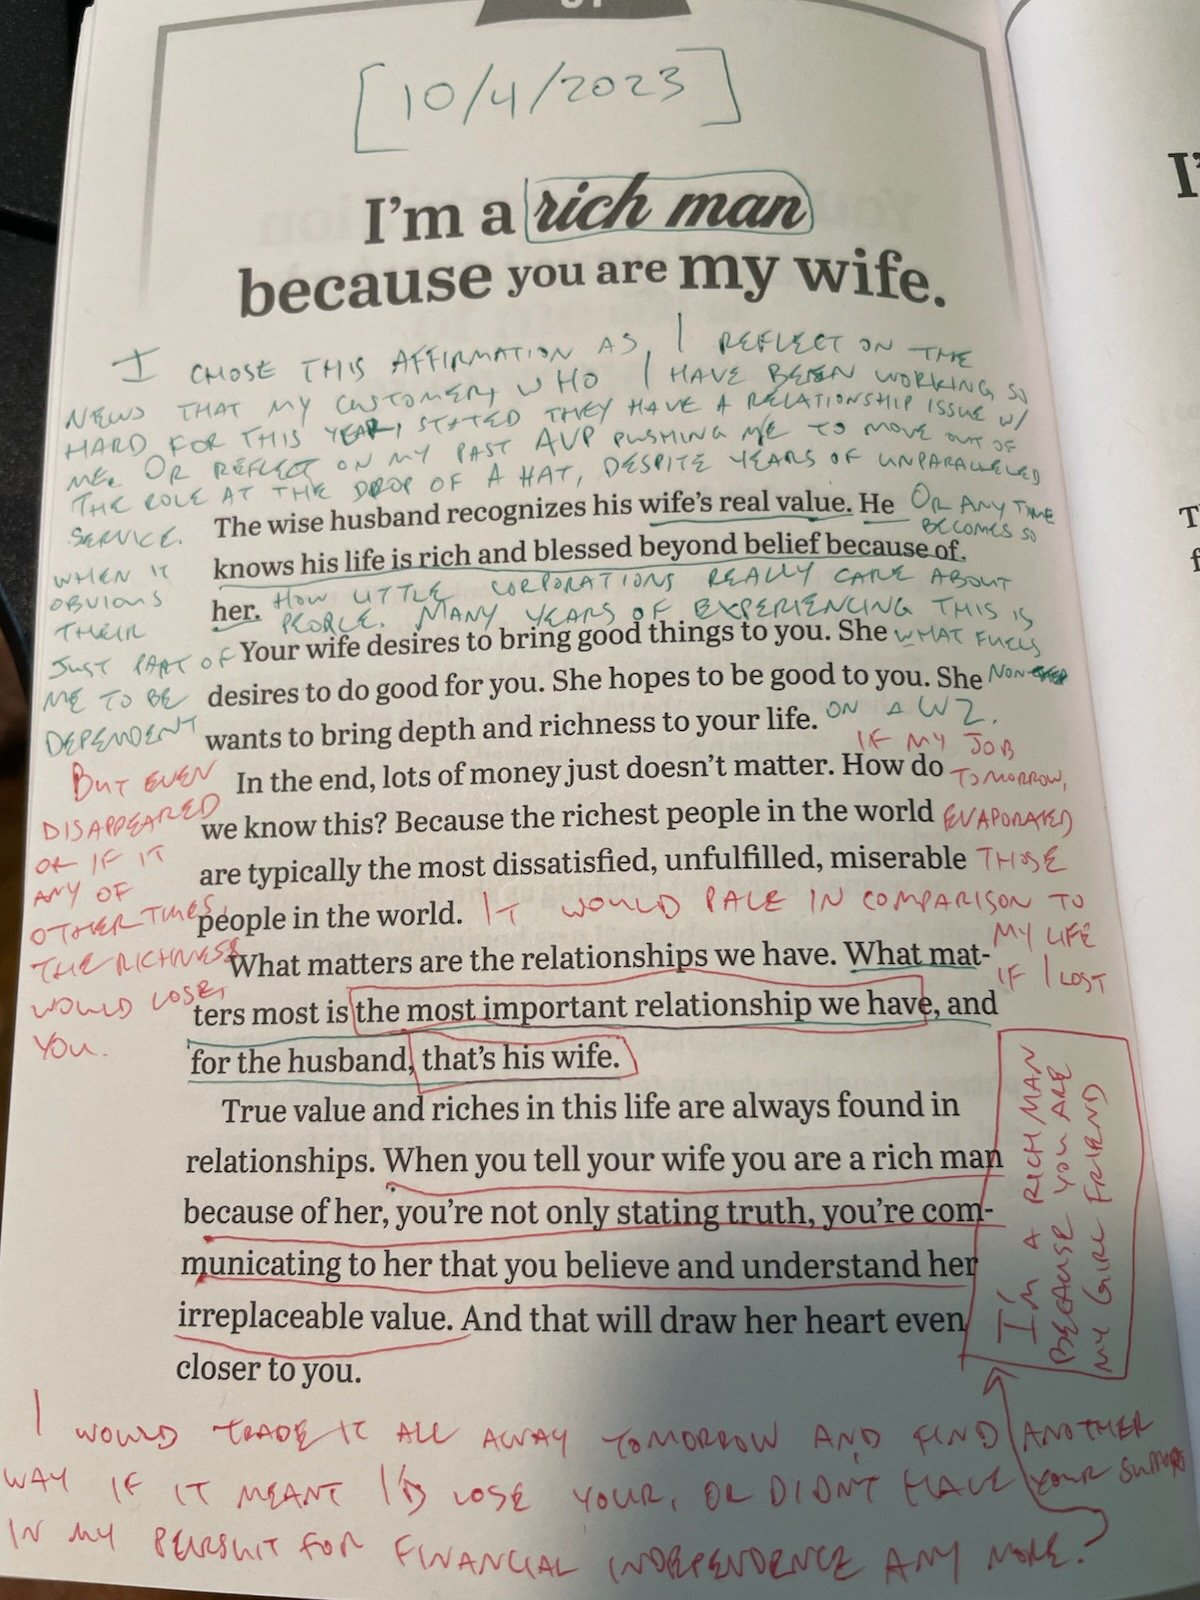 [10/4/2023]
I'm a rich man
because you are my wife.
I CHOSE THIS AFFIRMATION AS, I REFLECT ON THE
NEWS THAT MY CUSTOMER, WHO I HAVE BEEN WORKING SO
HARD FOR THIS YEAR, STATED THEY HAVE A RELATIONSHIP ISSUE W/
ME. OR REFLECT ON MY PAST AVP PUSHING ME TO MOVE OUT OF
THE ROLE AT THE DROP OF A HAT, DESPITE YEARS OF UNPARALLELED
SERVICE.
The wise husband recognizes his wife's real value. He
OR ANY TIME
BECOMES SO
knows his life is rich and blessed beyond belief because of
WHEN IT
OBVIOUS
her.
HOW LITTLE CORPORATIONS REALLY CARE ABOUT
THEIR
PEOPLE. MANY YEARS OF EXPERIENCING THIS IS
JUST PART OF
Your wife desires to bring good things to you. She
WHAT FUELS
ME TO BE
desires to do good for you. She hopes to be good to you. She
NON-
DEPENDENT
wants to bring depth and richness to your life.
ON A W2.
BUT EVEN
IF MY JOB
In the end, lots of money just doesn't matter. How do
TOMORROW,
DISAPPEARED
we know this? Because the richest people in the world
EVAPORATED
OR IF IT
are typically the most dissatisfied, unfulfilled, miserable
THOSE
ANY OF
OTHER TIMES,
people in the world.
IT WOULD PALE IN COMPARISON TO
THE RICHNESS
MY LIFE
What matters are the relationships we have. What mat-
IF I LOST
WOULD LOSE,
ters most is the most important relationship we have, and
YOU.
for the husband, that's his wife.
True value and riches in this life are always found in
relationships. When you tell your wife you are a rich man
because of her, you're not only stating truth, you're com-
municating to her that you believe and understand her
irreplaceable value. And that will draw her heart even
closer to you.
I'M A RICH MAN
BECAUSE YOU ARE
MY GIRL FRIEND
I WOULD TRADE IT ALL AWAY TOMORROW AND FIND ANOTHER
WAY IF IT MEANT I'D LOSE YOUR, OR DIDN'T HAVE YOUR SUPPORT
IN MY PERSUIT FOR FINANCIAL INDEPENDENCE ANY MORE.
I'
T
f